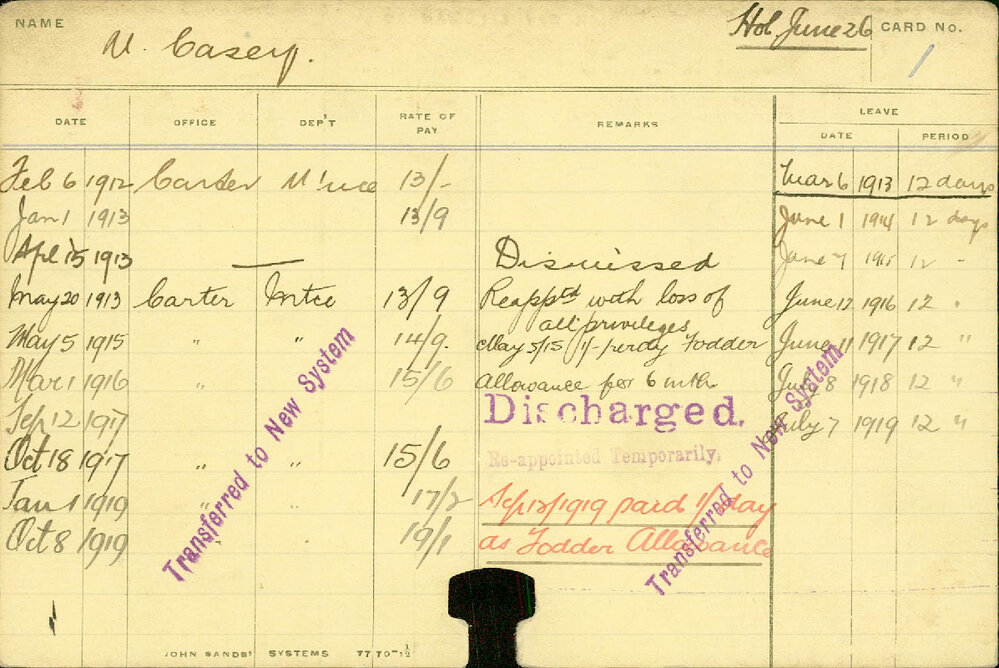 NAME
M. Casey.
Hol June 26
CARD No.
1
DATE OFFICE DEP'T RATE OF PAY REMARKS LEAVE
DATE PERIOD
Feb 6 1912 Carter M'nce 13/- Mar 6 1913 12 days
Jan 1 1913 13/9 June 1 1914 12 days
Apl 15 1913 — Dismissed June 7 1915 12 "
May 20 1913 Carter Mtce 13/9 Reapptd with loss of June 12 1916 12 "
all privileges
May 5 1915 " " 14/9. May 5/15 1/- per day Fodder June 11 1917 12 "
Mar 1 1916 " 15/6 Allowance for 6 mths July 8 1918 12 "
Sep 12 1917 Discharged. July 7 1919 12 "
Oct 18 1917 " " 15/6 Re-appointed Temporarily.
Jan 1 1919 " " 17/2 Sep 12/1919 paid 1/- day
Oct 8 1919 " " 19/1 as Fodder Allowance
Transferred to New System
Transferred to New System
JOHN SANDS' SYSTEMS 77 70-1½